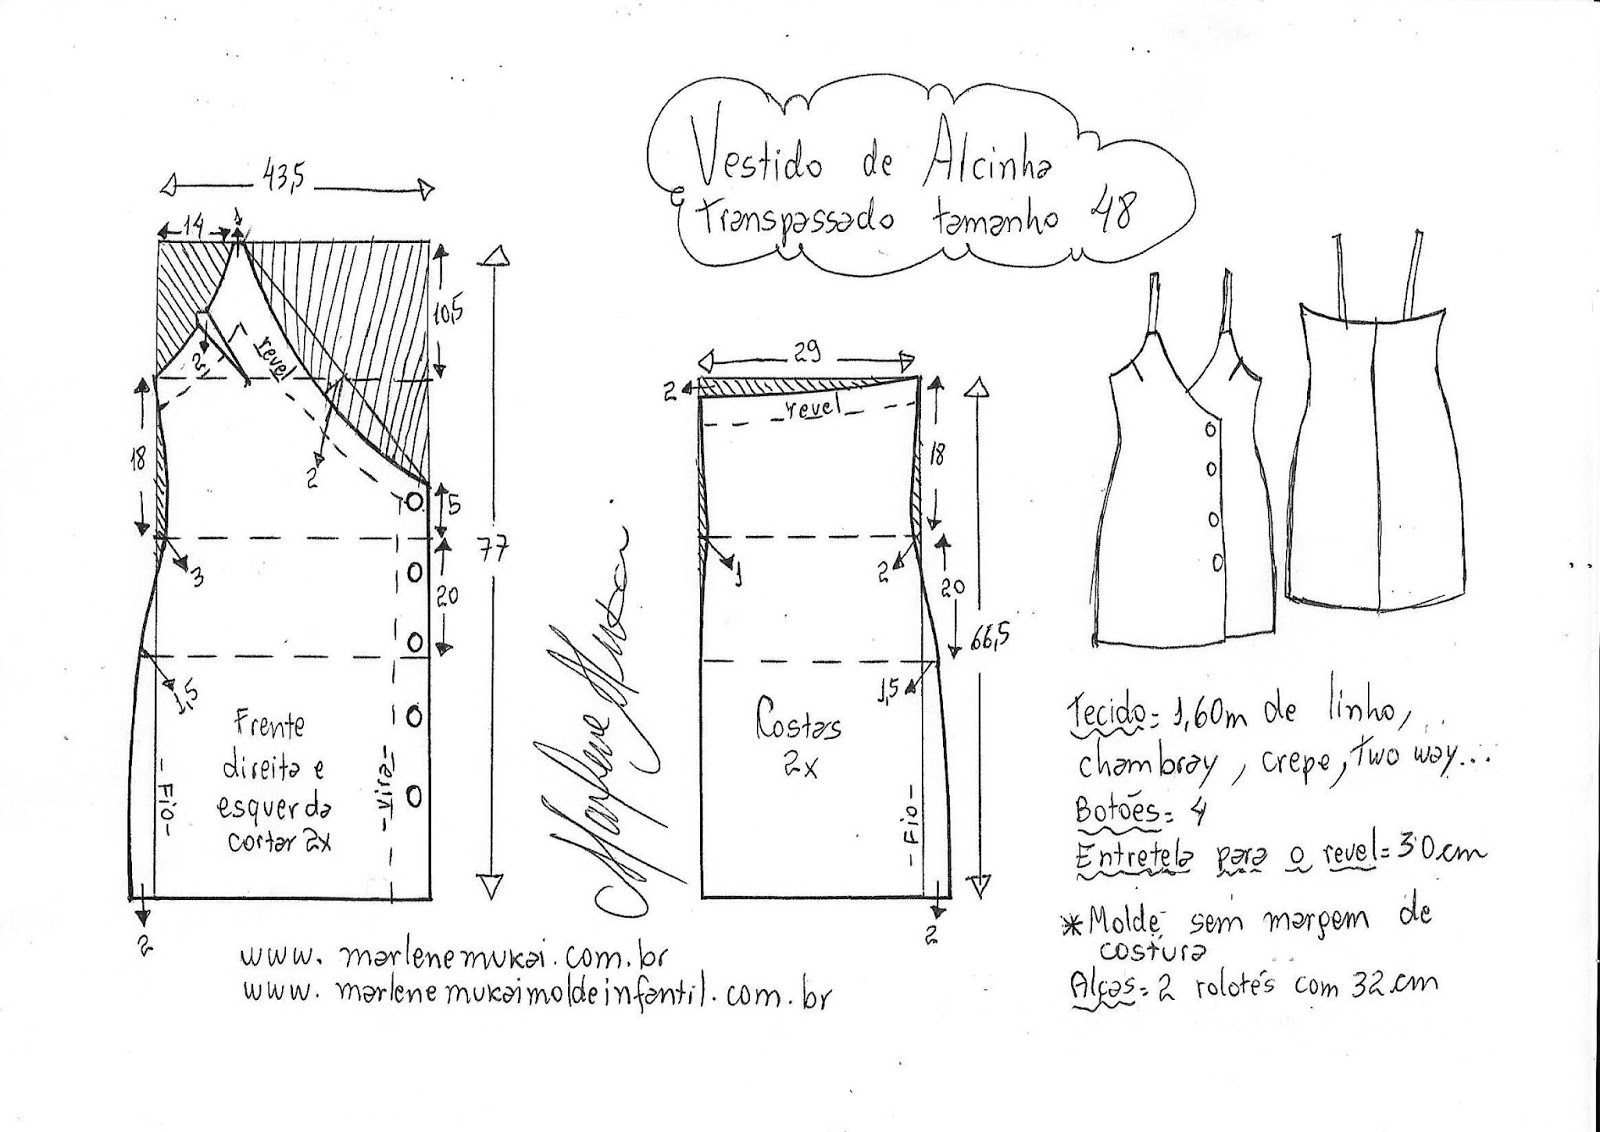 Vestido de Alcinha
e transpassado tamanho 48
43,5
14
1
10,5
revel
2
2
18
3
5
77
20
1,5
Frente
direita e
esquerda
cortar 2x
-Fio-
-Vira-
2
29
2
revel
18
1
2
20
66,5
1,5
Costas
2x
-Fio-
2
Marlene Mukai
Tecido= 1,60m de linho,
chambray, crepe, two way...
Botões= 4
Entretela para o revel= 30cm
*Molde sem margem de
costura
Alças= 2 rolotés com 32cm
www.marlenemukai.com.br
www.marlenemukaimoldeinfantil.com.br